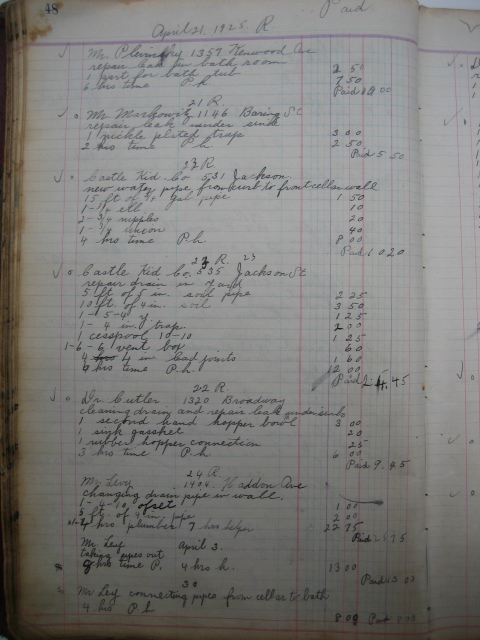 48
Paid
April 21. 1925. R.
1357 Kenwood Ave
repair leak in bath room 2 50
1 part for bath tub 7 50
6 hrs time P h Paid 10 00
21 R.
Mr Markowitz 1146 Baring St
repair leak under sink
1 nickle plated trap 3 00
2 hrs time P h 2 50
Paid 5 50
23 R
Castle Kid Co 531 Jackson
new water pipe from curb to front cellar wall
15 ft of 3/4 gal pipe 1 50
1-3/4 ell 10
2-3/4 nipples 20
1-3/4 union 40
4 hrs time P h 8 00
Paid 10 20
23 R. 23
Castle Kid Co. 535 Jackson St
repair drain in yard
5 ft of 5 in. soil pipe 2 25
10 ft. of 4 in. soil 3 50
1-5-4 y. 1 25
1-4 in. trap 2 00
1 cesspool 10-10 1 25
1-6-6 vent box 60
4 4 in lead joints 1 60
4 hrs time P. h. 12 00
Paid 24.45
22 R.
Dr. Cutler 1320 Broadway
cleaning drain and repair leak under sink
1 second hand hopper bowl 3 00
1 sink gasshet 20
1 rubber hopper connection 25
3 hrs time P h 6 00
Paid 9.45
24 R
Mr Levy 1494. Haddon Ave
changing drain pipe in wall.
1-4-10, ofset 1 00
5 ft of 4 in. pipe 2 00
hrs plumber 7 hrs helper 22 75
Paid 25 75
Mr Ley April 3.
taking pipes out
hrs time P. 4 hrs h. 13 00
Paid 13 00
30
Mr Ley connecting pipes from cellar to bath
4 hrs. P h 8 00 Paid 8 00